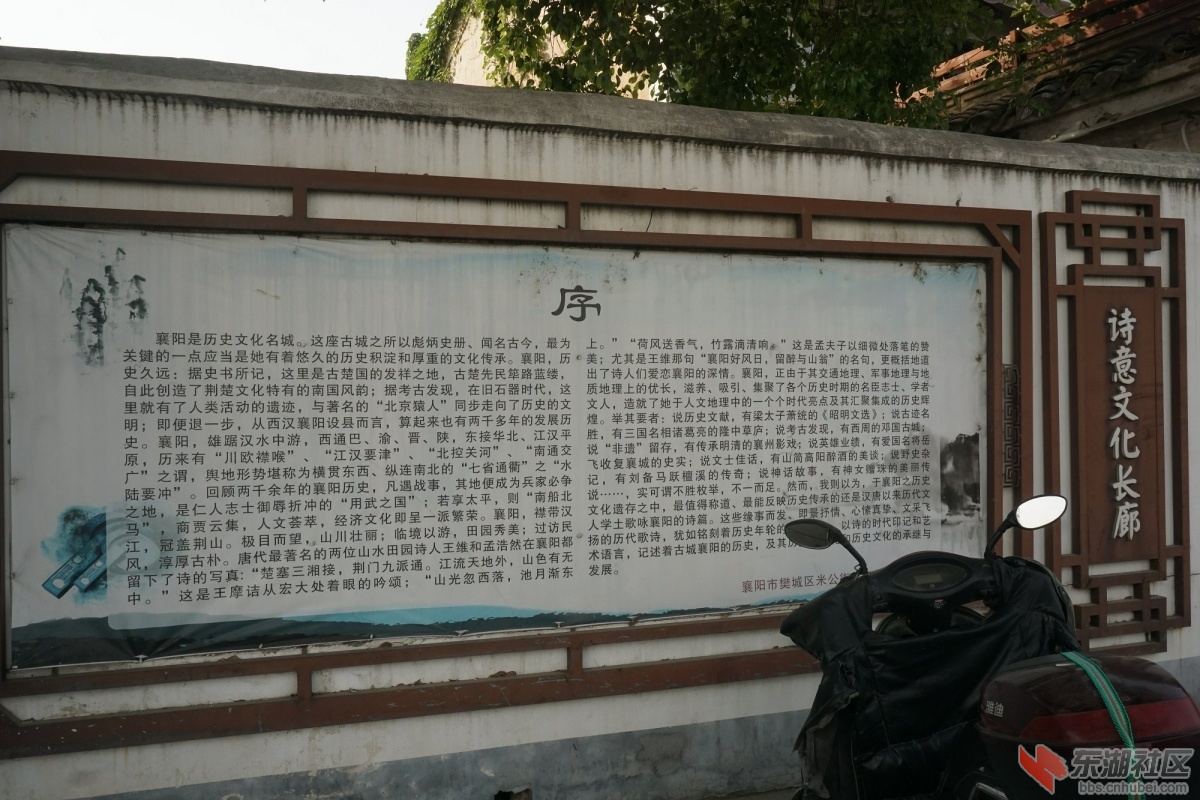 序
襄阳是历史文化名城。这座古城之所以彪炳史册、闻名古今，最为
关键的一点应当是她有着悠久的历史积淀和厚重的文化传承。襄阳，历
史久远：据史书所记，这里是古楚国的发祥之地，古楚先民筚路蓝缕，
自此创造了荆楚文化特有的南国风韵；据考古发现，在旧石器时代，这
里就有了人类活动的遗迹，与著名的“北京猿人”同步走向了历史的文
明；即便退一步，从西汉襄阳设县而言，算起来也有两千多年的发展历
史。襄阳，雄踞汉水中游，西通巴、渝、晋、陕，东接华北、江汉平
原，历来有“川欧襟喉”、“江汉要津”、“北控关河”、“南通交
广”之谓，舆地形势堪称为横贯东西、纵连南北的“七省通衢”之“水
陆要冲”。回顾两千余年的襄阳历史，凡遇战事，其地便成为兵家必争
之地，是仁人志士御辱折冲的“用武之国”；若享太平，则“南船北
马”，商贾云集，人文荟萃，经济文化即呈一派繁荣。襄阳，襟带汉
江，冠盖荆山。极目而望，山川壮丽；临境以游，田园秀美；过访民
风，淳厚古朴。唐代最著名的两位山水田园诗人王维和孟浩然在襄阳都
留下了诗的写真：“楚塞三湘接，荆门九派通。江流天地外，山色有无
中。”这是王摩诘从宏大处着眼的吟颂；“山光忽西落，池月渐东
上。”“荷风送香气，竹露滴清响。”这是孟夫子以细微处落笔的赞
美；尤其是王维那句“襄阳好风日，留醉与山翁”的名句，更概括地道
出了诗人们爱恋襄阳的深情。襄阳，正由于其交通地理、军事地理与地
质地理上的优长，滋养、吸引、集聚了各个历史时期的名臣志士、学者
文人，造就了她于人文地理中的一个个时代亮点及其汇聚集成的历史辉
煌。举其要者：说历史文献，有梁太子萧统的《昭明文选》；说古迹名
胜，有三国名相诸葛亮的隆中草庐；说考古发现，有西周的邓国古城；
说“非遗”留存，有传承明清的襄州影戏；说英雄业绩，有爱国名将岳
飞收复襄城的史实；说文士佳话，有山简高阳醉酒的美谈；说野史杂
记，有刘备马跃檀溪的传奇；说神话故事，有神女赠珠的美丽传
说……，实可谓不胜枚举，不一而足。然而，我则以为，于襄阳之历史
文化遗存之中，最值得称道、最能反映历史传承的还是汉唐以来历代文
人学士歌咏襄阳的诗篇。这些缘事而发、即景抒情、心愫真挚、文采飞
扬的历代歌诗，犹如铭刻着历史年轮的 以诗的时代印记和艺
术语言，记述着古城襄阳的历史，及其历 和历史文化的承继与
发展。
襄阳市樊城区米公
诗意文化长廊
雅迪
东湖社区
bbs.cnhubei.com